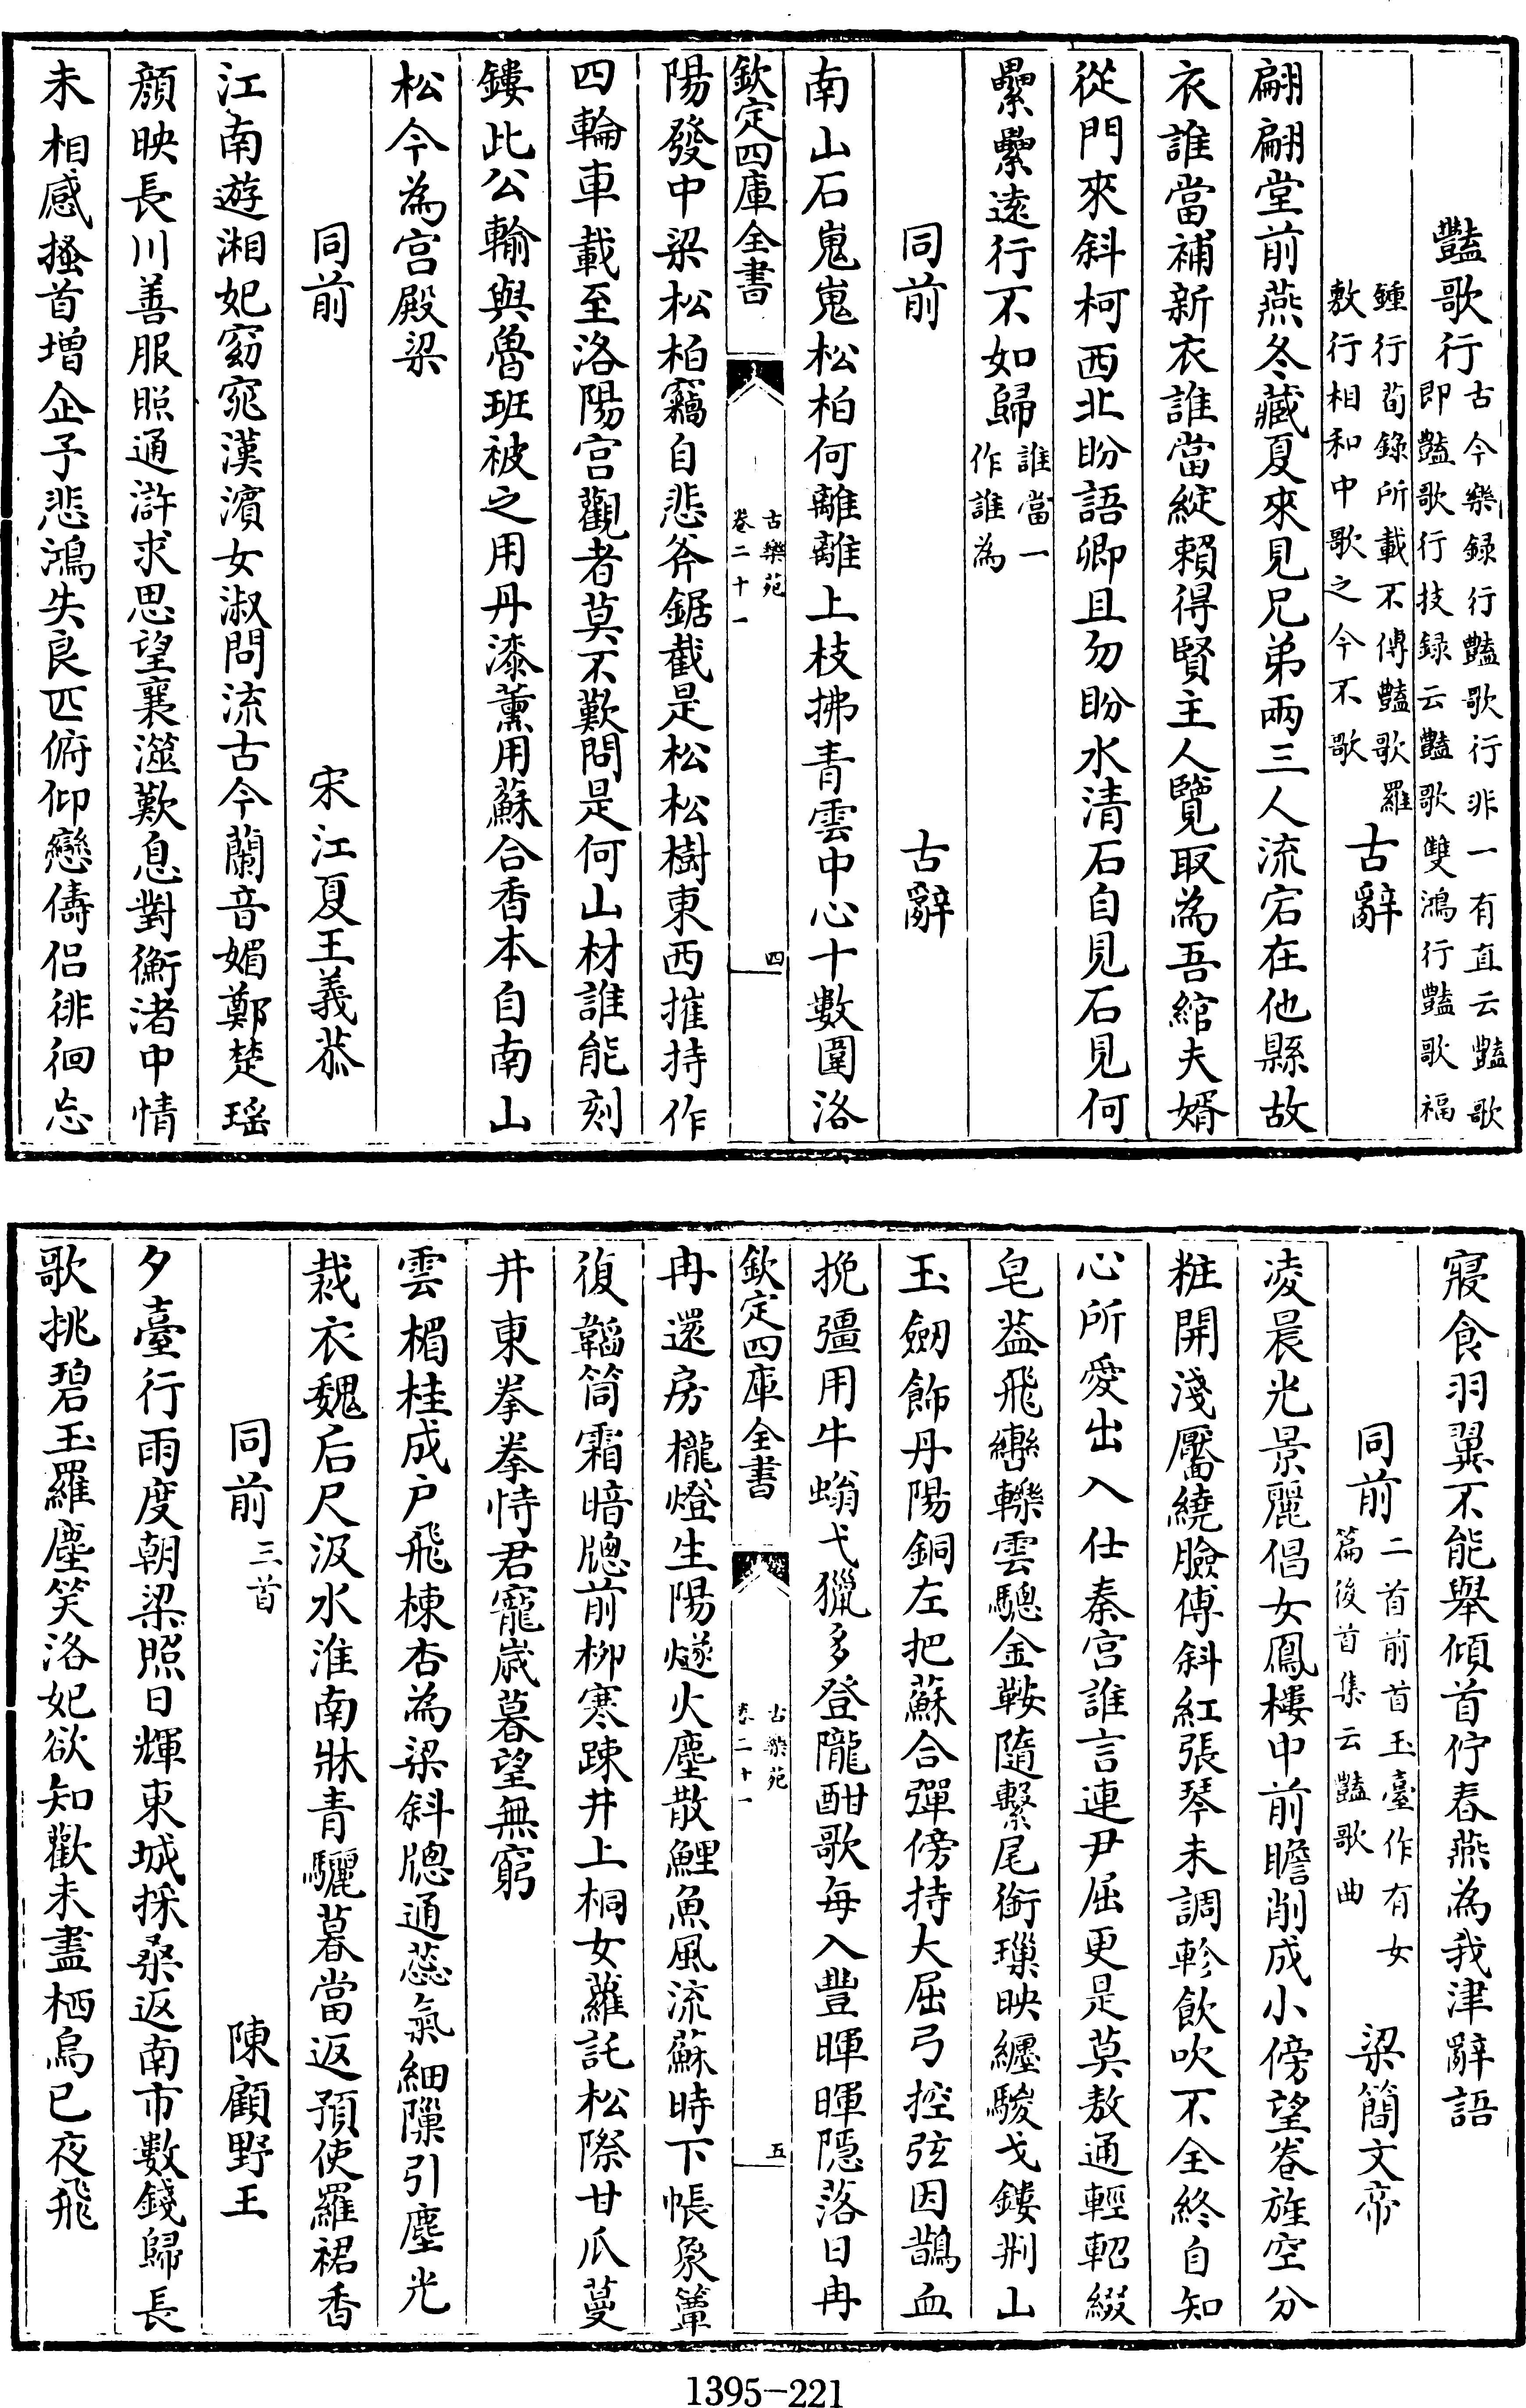 豔歌行古今樂録行豔歌行非一有直云豔歌
即豔歌行技録云豔歌雙鴻行豔歌福
鍾行荀錄所載不傳豔歌羅
敷行相和中歌之今不歌 古辭
翩翩堂前燕冬藏夏來見兄弟兩三人流宕在他縣故
衣誰當補新衣誰當綻賴得賢主人覽取為吾綰夫婿
從門來斜柯西北盼語卿且勿盼水清石自見石見何
纍纍遠行不如歸誰當一
作誰為
同前 古辭
南山石嵬嵬松柏何離離上枝拂青雲中心十數圍洛
欽定四庫全書
古樂苑
卷二十一
四
陽發中梁松柏竊自悲斧鋸截是松松樹東西摧持作
四輪車載至洛陽宫觀者莫不歎問是何山材誰能刻
鏤此公輸與魯班被之用丹漆薰用蘇合香本自南山
松今為宫殿梁
同前 宋江夏王義恭
江南遊湘妃窈窕漢濱女淑問流古今蘭音媚鄭楚瑶
顏映長川善服照通滸求思望襄澨歎息對衡渚中情
未相感搔首增企予悲鴻失良匹俯仰戀儔侣徘徊忘
寢食羽翼不能舉傾首佇春燕為我津辭語
同前二首前首玉臺作有女
篇後首集云豔歌曲 梁簡文帝
凌晨光景麗倡女鳳樓中前瞻削成小傍望卷旌空分
粧開淺靨繞臉傅斜紅張琴未調軫飲吹不全終自知
心所愛出入仕秦宫誰言連尹屈更是莫敖通輕軺綴
皂葢飛轡轢雲驄金鞍隨繫尾銜璅映纏騣戈鏤荆山
玉劒飾丹陽銅左把蘇合彈傍持大屈弓控弦因鵲血
挽彊用牛螉弋獵多登隴酣歌每入豐暉暉隱落日冉
欽定四庫全書
古樂苑
卷二十一
五
冉還房櫳燈生陽燧火塵散鯉魚風流蘇時下帳象簟
復韜筒霜暗牎前柳寒踈井上桐女蘿託松際甘瓜蔓
井東拳拳恃君寵歲暮望無窮
雲楣桂成户飛棟杏為梁斜牎通蕊氣細隟引塵光
裁衣魏后尺汲水淮南牀青驪暮當返預使羅裙香
同前三首 陳顧野王
夕臺行雨度朝梁照日輝東城採桑返南市數錢歸長
歌挑碧玉羅塵笑洛妃欲知歡未盡栖烏已夜飛
1395-221